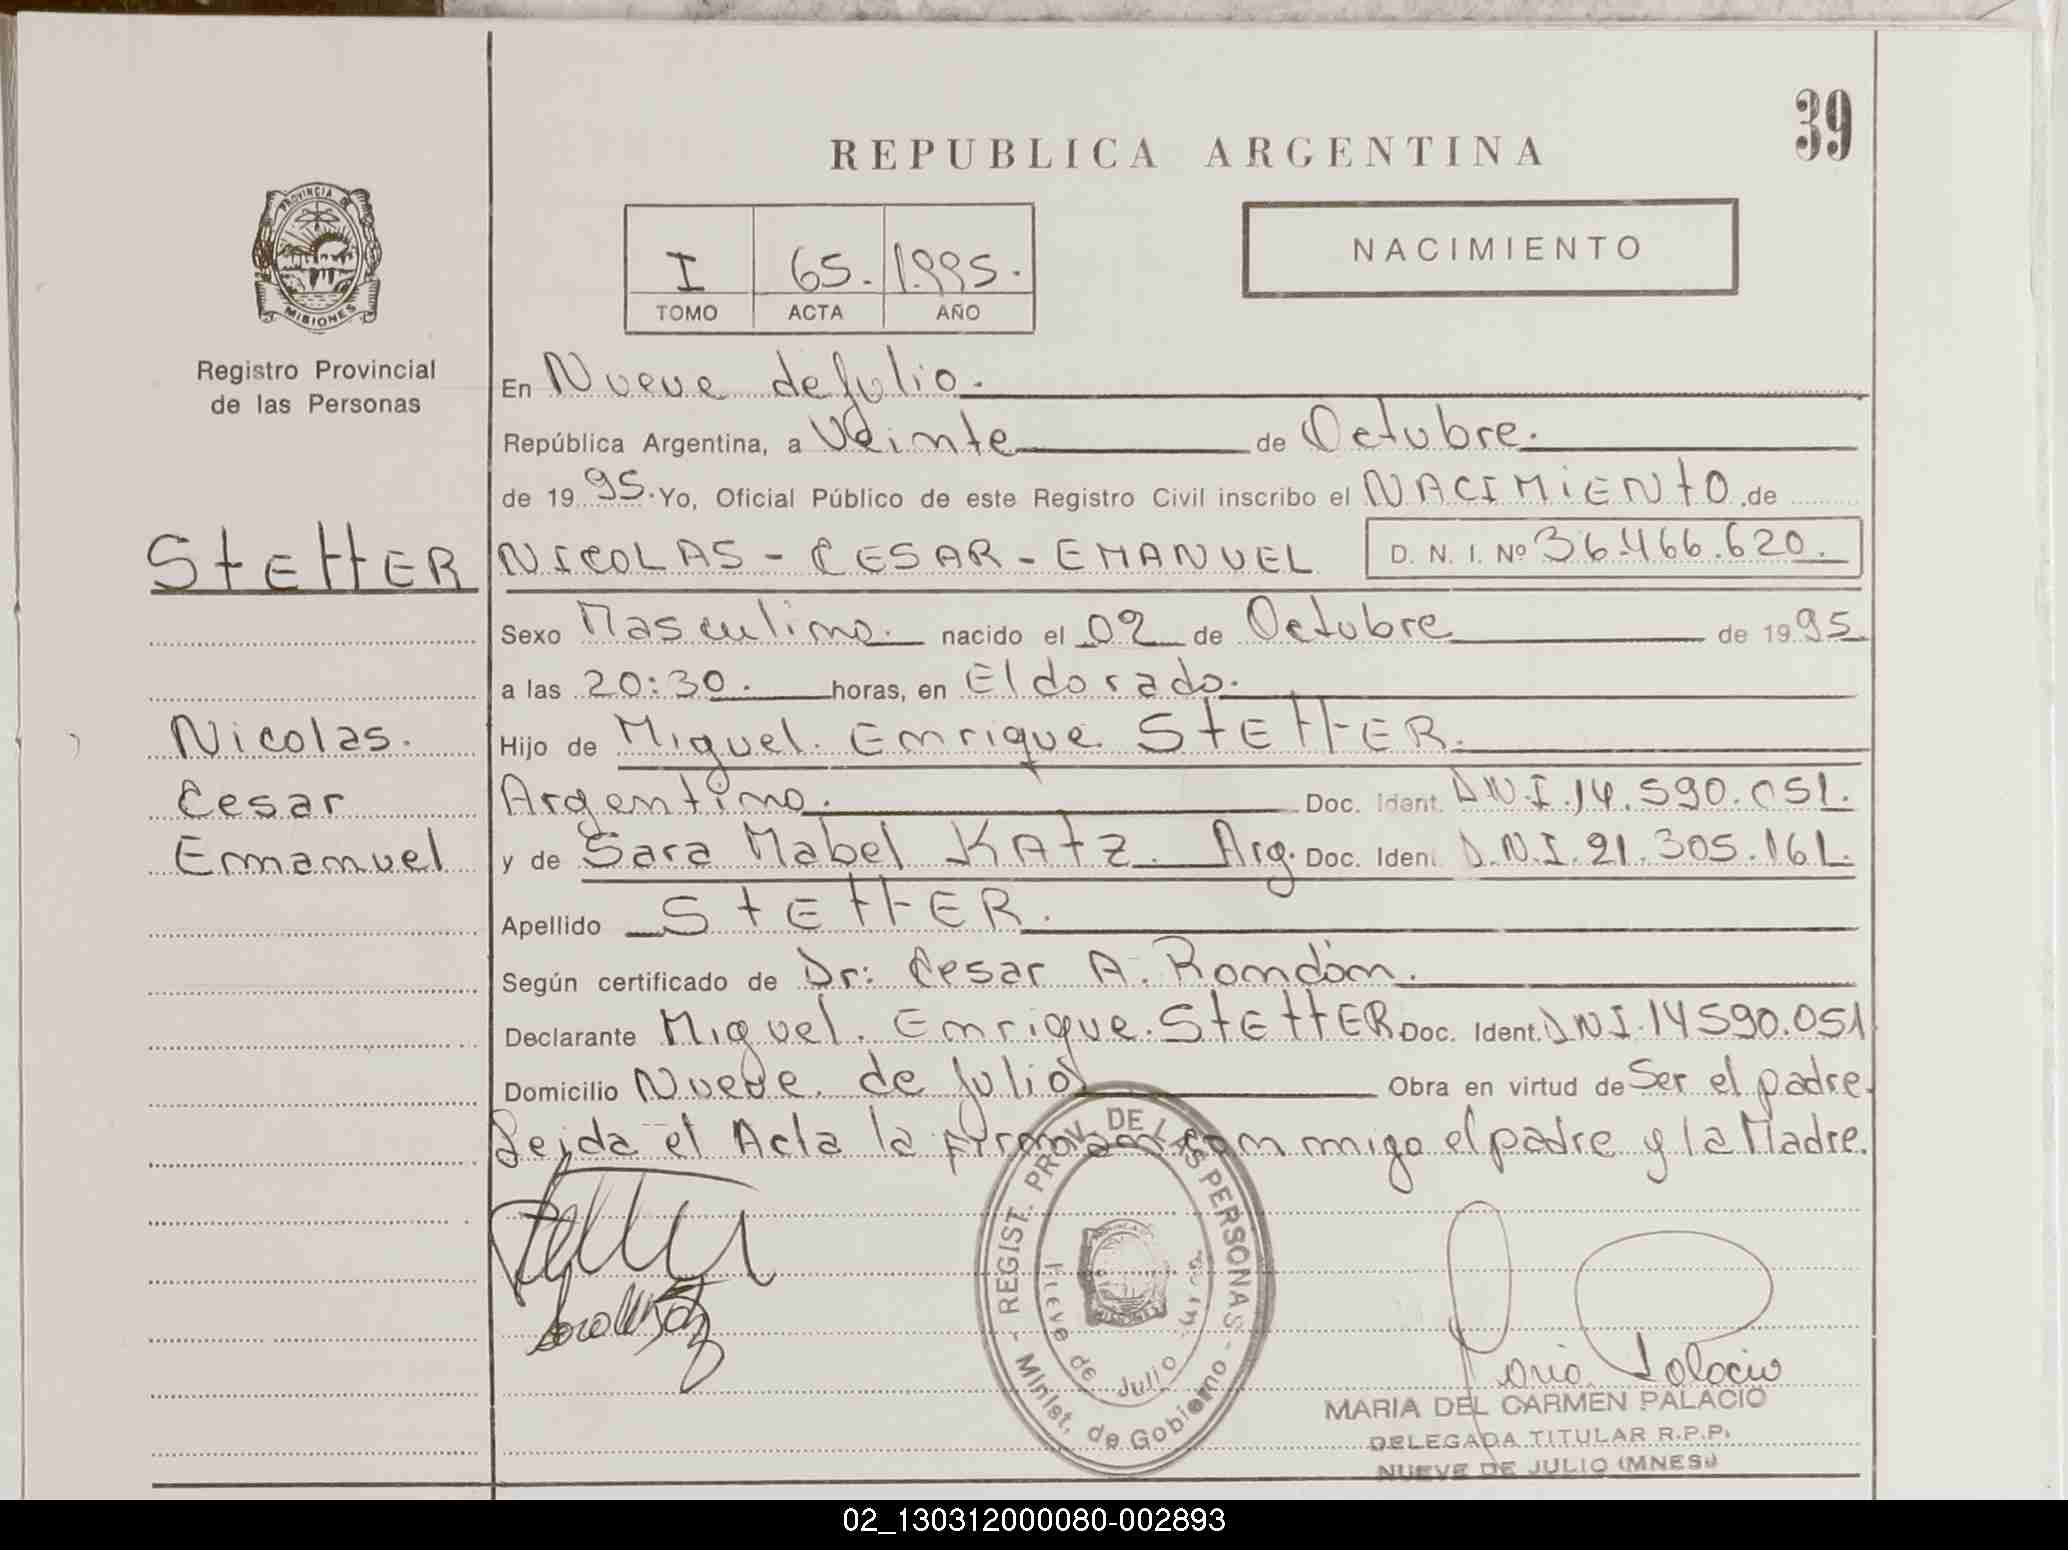 39
REPUBLICA ARGENTINA
PROVINCIA DE MISIONES
I 65. 1.995.
TOMO ACTA AÑO
NACIMIENTO
Registro Provincial
de las Personas
En Nueve de Julio.
República Argentina, a Veinte de Octubre.
de 19 95. Yo, Oficial Público de este Registro Civil inscribo el NACIMIENTO de
STETTER NICOLAS - CESAR - EMANUEL D. N. I. Nº 36.466.620.
Sexo Masculino. nacido el 02 de Octubre de 19 95
a las 20:30. horas, en Eldorado.
Nicolas. Hijo de Miguel. Enrique STETTER.
Cesar Argentino. Doc. Ident. D.N.I. 14.590.051.
Emanuel y de Sara Mabel KATZ. Arg. Doc. Ident. D.N.I. 21.305.161.
Apellido STETTER.
Según certificado de Dr: Cesar A. Rondón.
Declarante Miguel. Enrique. STETTER Doc. Ident. DNI. 14 590.051
Domicilio Nueve. de Julio Obra en virtud de Ser el padre.
Leida el Acta la firman conmigo el padre y la Madre.
REGIST. PROV. DE LAS PERSONAS
- Minist. de Gobierno -
de Julio
Maria Palacio
MARIA DEL CARMEN PALACIO
DELEGADA TITULAR R.P.P.
NUEVE DE JULIO (MNES)
02_130312000080-002893